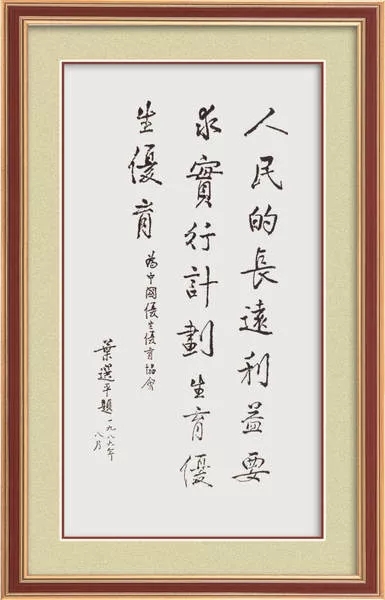 人民的長遠利益要
求實行計劃生育優
生優育
為中國優生優育協會
葉選平題一九八九年
八月